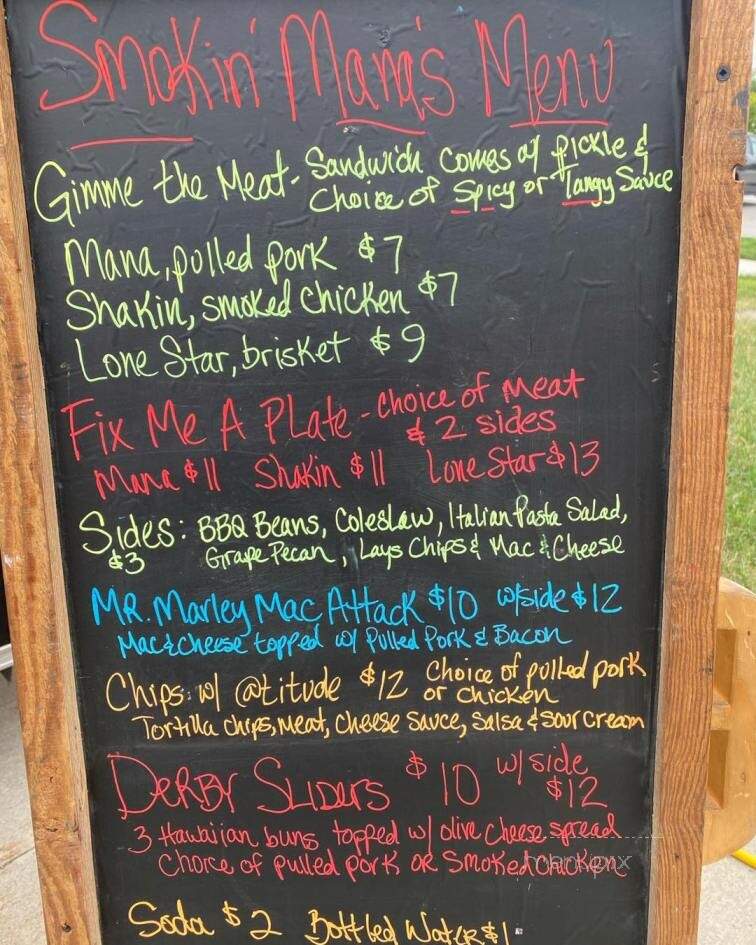 Smokin' Mana's Menu
Gimme the Meat - Sandwich comes w/ pickle &
Choice of Spicy or Tangy Sauce
Mana, pulled pork $7
Shakin, smoked chicken $7
Lone Star, brisket $9
Fix Me A Plate - choice of meat
& 2 sides
Mana $11 Shakin $11 Lone Star $13
Sides: BBQ Beans, Coleslaw, Italian Pasta Salad,
$3 Grape Pecan, Lays Chips & Mac & Cheese
MR. Marley Mac Attack $10 w/side $12
Mac & cheese topped w/ Pulled Pork & Bacon
Chips w/ @titude $12 Choice of pulled pork
or chicken
Tortilla chips, meat, cheese sauce, salsa & sour cream
DERBY SLIDERS $10 w/side
$12
3 Hawaiian buns topped w/ olive cheese spread
Choice of pulled pork or smoked chicken
Soda $2 Bottled Water $1